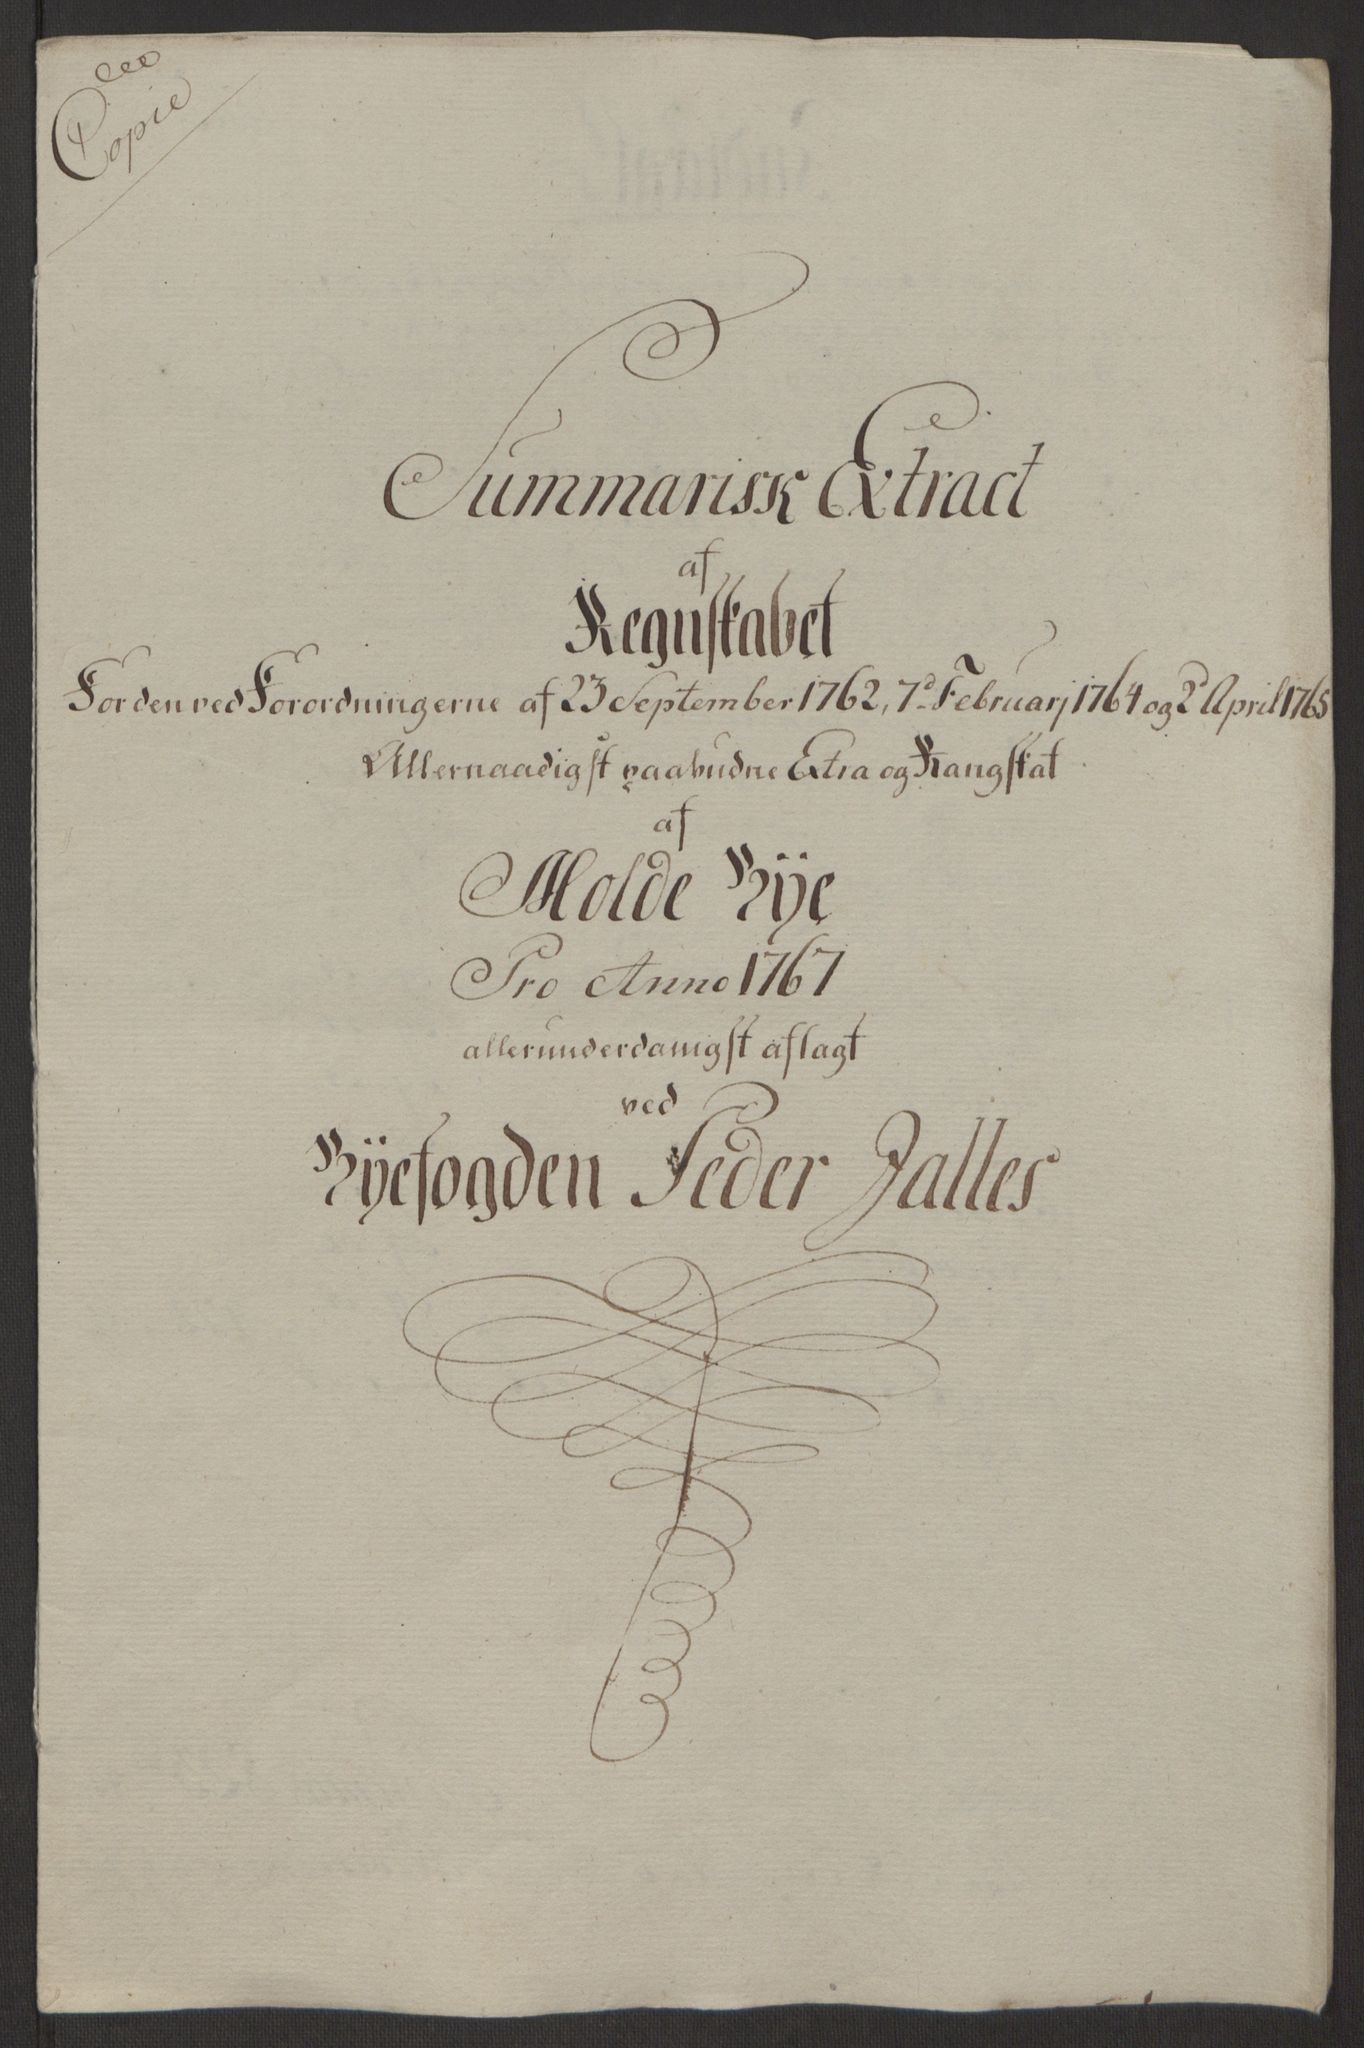 Copie
Summarisk Extract
af
Regnskabet
For den ved Forordningerne af 23 September 1762, 7d Februarj 1764 og 2d April 1765
Allernaadigst paabudne Extra og Rangskat
af
Molde Bÿe
Pro Anno 1767
allerunderdanigst aflagt
ved
Bÿefogden Peder Dalles